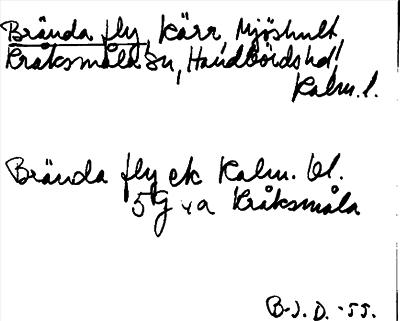 Brända fly, kärr, Mjöshult,
Kråksmåla sn, Handbörds hd,
Kalm. l.
Brända fly ek Kalm. bl.
5 G v a Kråksmåla
B-J. D. -55.